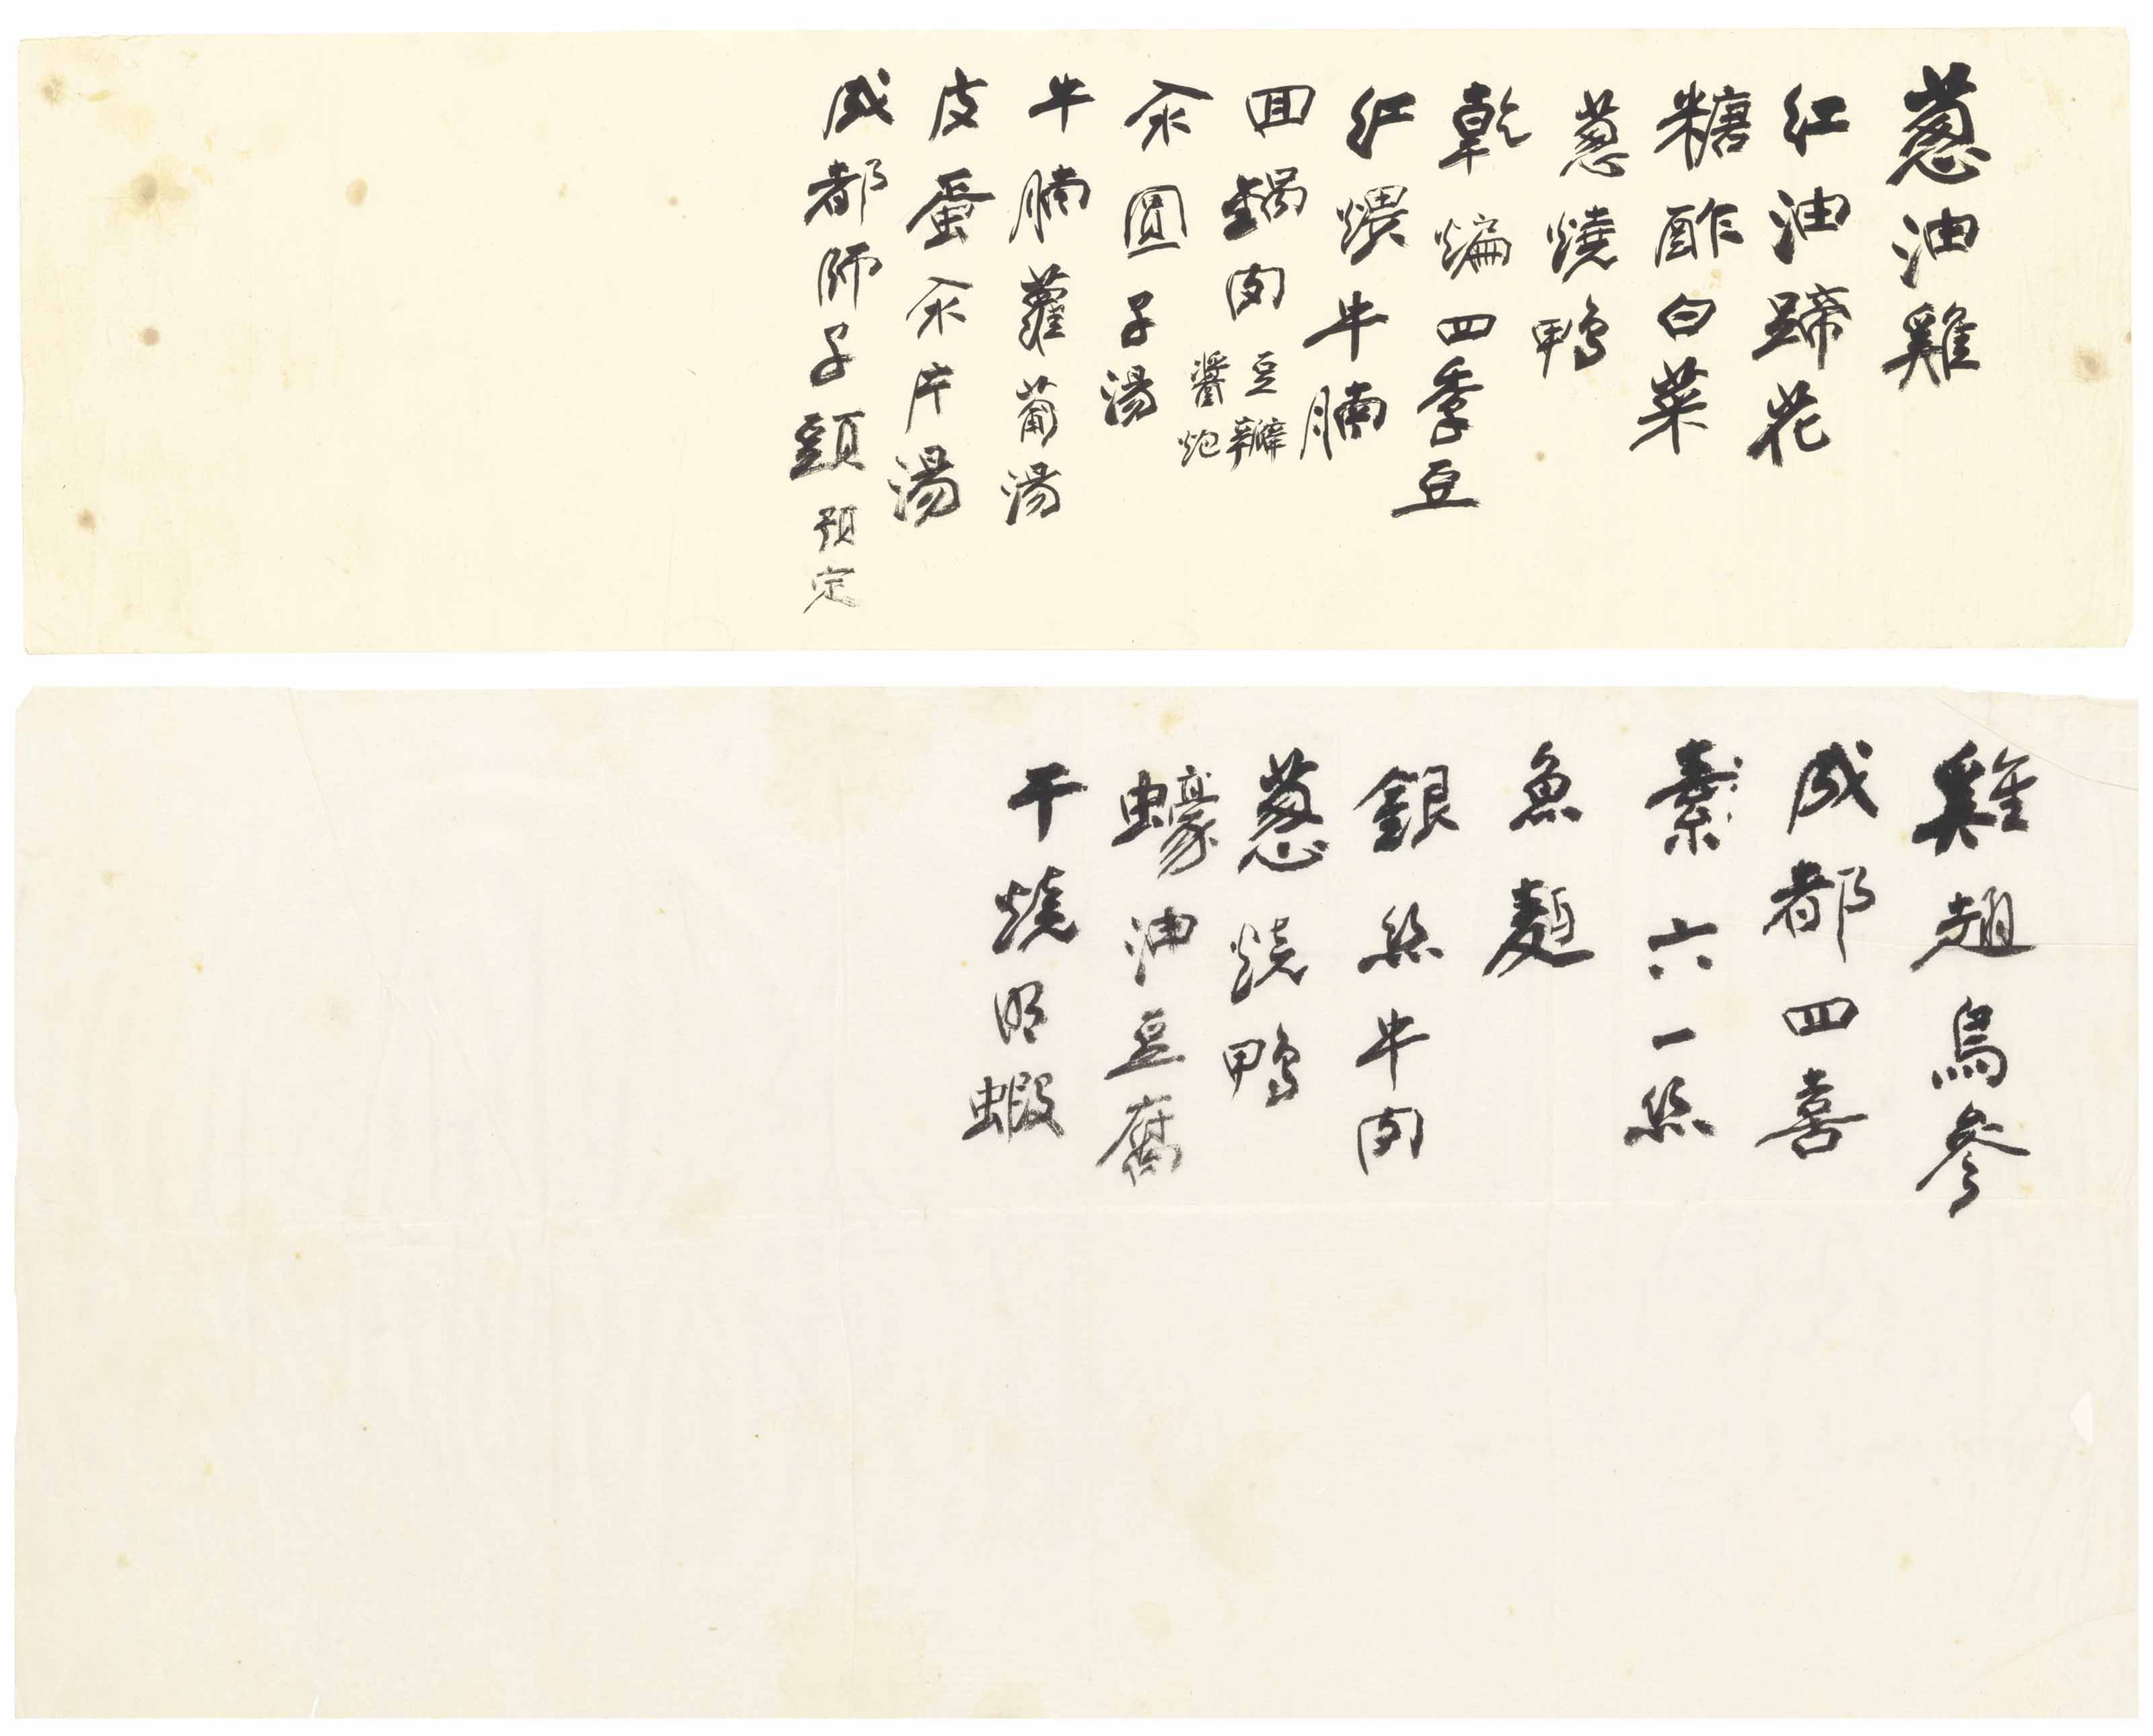 蔥油雞
紅油蹄花
糖酢白菜
蔥燒鴨
乾煸四季豆
紅煨牛腩
回鍋肉 豆瓣 醬炮
汆圓子湯
牛腩蘿蔔湯
皮蛋汆片湯
成都師子頭 預定
雞趐烏參
成都四喜
素六一絲
魚麵
銀絲牛肉
蔥燒鴨
蠔油豆腐
干燒明蝦